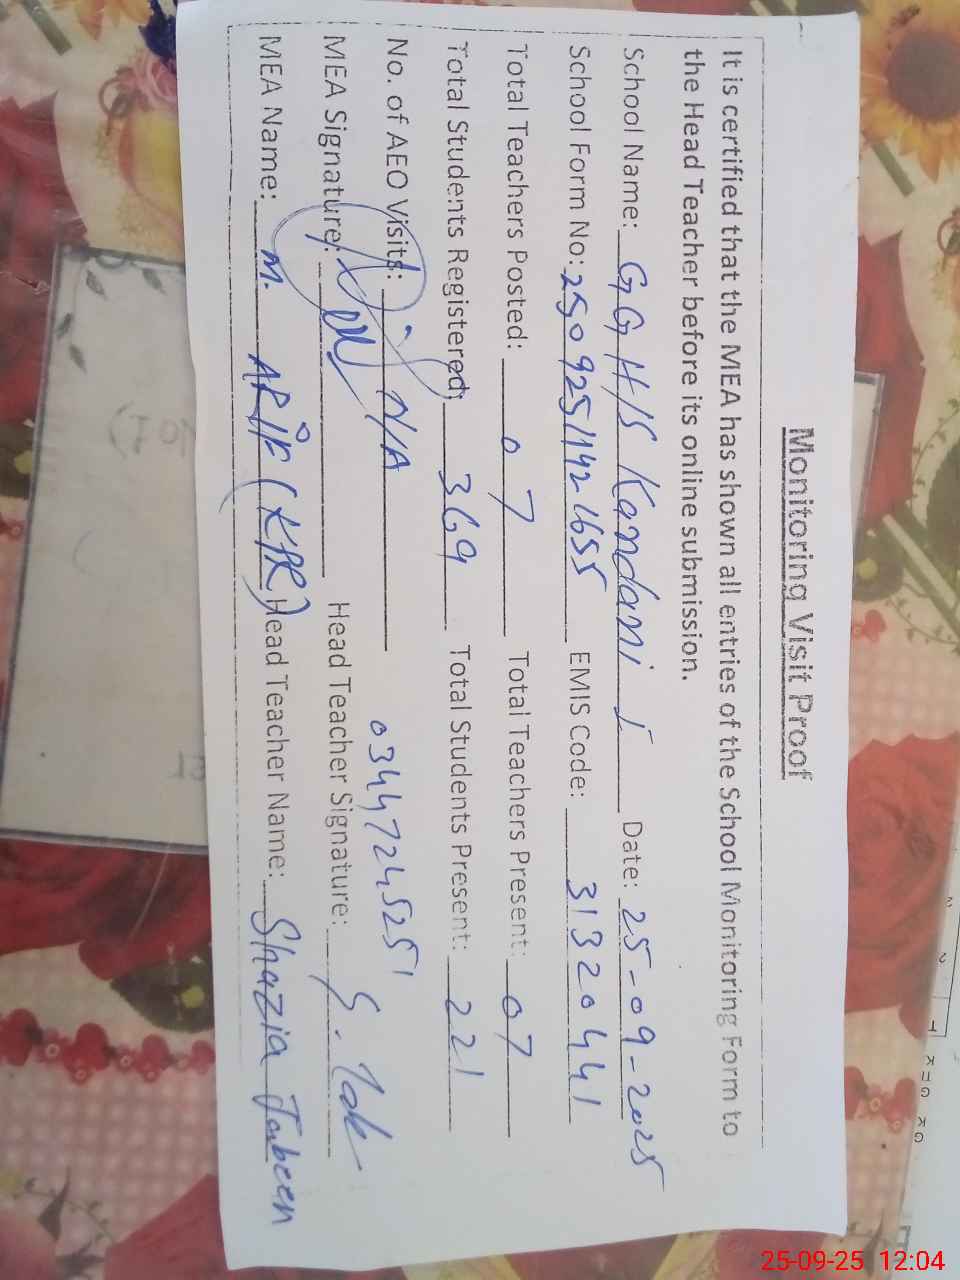 Monitoring Visit Proof
It is certified that the MEA has shown all entries of the School Monitoring Form to
the Head Teacher before its online submission.
School Name: GGHS Kandani Date: 25-09-2025
School Form No: 25092511421655 EMIS Code: 31320441
Total Teachers Posted: 07 Total Teachers Present: 07
Total Students Registered: 369 Total Students Present: 221
No. of AEO Visits: N/A 03447245251
MEA Signature: Head Teacher Signature:
MEA Name: M. ARIF (KPR) Head Teacher Name: Shazia Jabeen
25-09-25 12:04